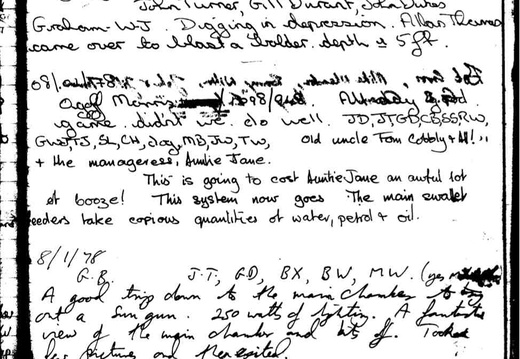 John Turner, Gill Durant, John Dukes
Graham W-J. Digging in depression. Allan Thomas
came over to blast a bolder. depth ≏ 5ft.
Geoff Morris
game didnt we do well. JD, JT, GD, CB, SS, RW,
GWJ, TJ, SL, CH, Jay, MB, JW, TW, Old uncle Tom Cobbly + All!!
+ the manageress, Auntie Jane.
This is going to cost Auntie Jane an awful lot
of booze! This system now goes. The main swallet
feeders take copious quantities of water, petrol + oil.
8/1/78
G.B. J.T, GD, BX, BW, MW. (yes
A good trip down to the main chamber to try
out a Sun gun. 250 watts of lighting. A fantastic
view of the main chamber and its off. Tooked
few pictures and then exited.